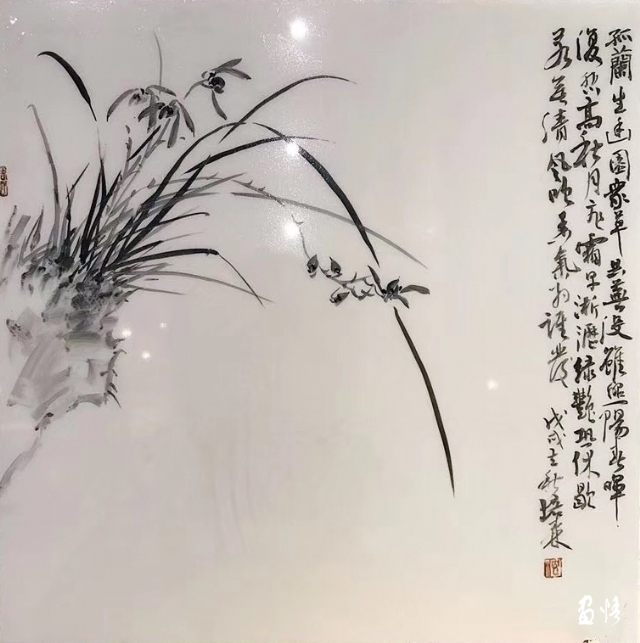 孤蘭生幽園眾草共蕪没雖照陽春暉
復悲高秋月飛霜早淅瀝緑艷恐休歇
若無清風吹香氣为誰發 戊戌立秋